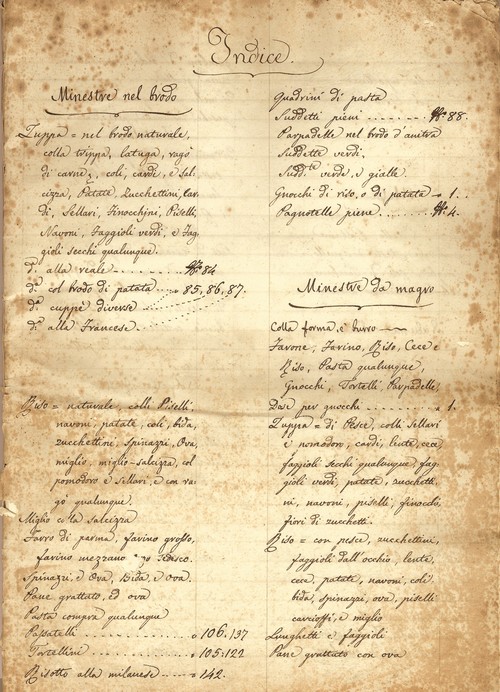 Indice.
Minestre nel brodo
Zuppa = nel brodo naturale,
colla trippa, latuga, ragò
di carne, coli, carde, e sal-
cizza, Patate, Zucchettini, Car-
di, Sellari, Finocchini, Piselli,
Navoni, Faggioli verdi, e Fag-
gioli secchi qualunque.
d.ª alla reale - - - - - - N.º 84
d.ª col brodo di patata - - - " 85, 86, 87.
d.ª cuppè diverse - - - -
d.ª alla Francese - - - -
Riso = naturale, colli Piselli,
navoni, patate, coli, bida,
zucchettini, spinazzi, Ova,
miglio, miglio-salcizza, col
pomodoro e Sellari, e con ra-
gò qualunque.
Miglio colla salcizza
Farro di parma, farino grosso,
farino mezzano e Tedesco.
Spinazzi, e Ova, Bida, e Ova.
Pane grattato, ed ova
Pasta compra qualunque
Passatelli - - - - - - " 106. 137
Tortellini - - - - - - " 105. 122
Risotto alla milanese - - - - " 142.
Quadrini di pasta
Suddetti pieni - - - - - - N.º 88.
Parpadelle nel brodo d'anitra
Suddette verdi,
Sudd.te verde, e gialle
Gnocchi di riso, o di patate " 1.
Pagnottelle piene - - - - N.º 4.
Minestre da magro
Colla forma, e burro
Favone, Farino, Riso, Cece e
Riso, Pasta qualunque,
Gnocchi, Tortelli, Parpadelle,
Dose per gnocchi - - - - - - " 1.
Zuppa = di Pesce, colli Sellari
e pomodoro, cardi, lente, cece,
faggioli secchi qualunque, fag-
gioli verdi, patate, zucchetti-
ni, navoni, piselli, finocchi,
fiori di zucchetti.
Riso = con pesce, zucchettini,
faggioli dall'occhio, lente,
cece, patate, navoni, coli
bida, spinazzi, ova, piselli
carcioffi, e miglio
Lunghetti e faggioli
Pane grattato con ova